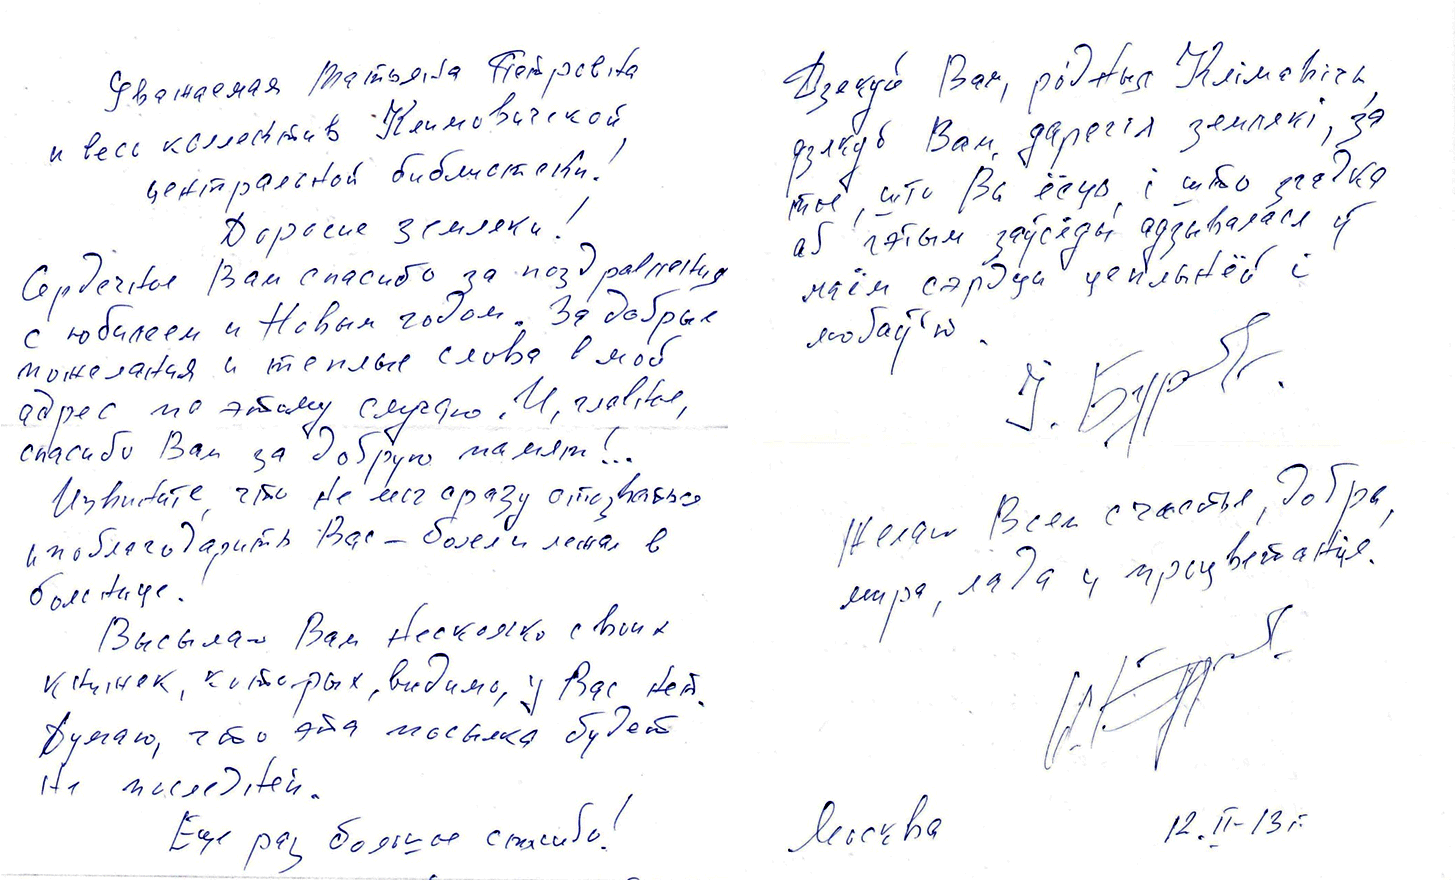 Уважаемая Татьяна Петровна
и весь коллектив Климовичской
центральной библиотеки!
Дорогие земляки!
Сердечное Вам спасибо за поздравления
с юбилеем и Новым годом. За добрые
пожелания и теплые слова в мой
адрес по этому случаю. И, главное,
спасибо Вам за добрую память!..
Извините, что не мог сразу отозваться
и поблагодарить Вас – болел и лежал в
больнице.
Высылаю Вам несколько своих
книжек, которых, видимо, у Вас нет.
Думаю, что эта посылка будет
не последней.
Еще раз большое спасибо!
Дзякуй Вам, родныя Клімавічы,
дзякуй Вам, дарагія землякі, за
тое, што Вы ёсць, і што згадка
аб гэтым заўсёды адзывалася ў
маём сэрцы цеплынёй і
любоўю.
Желаю Всем счастья, добра,
мира, лада и процветания.
Москва 12.II-13 г.